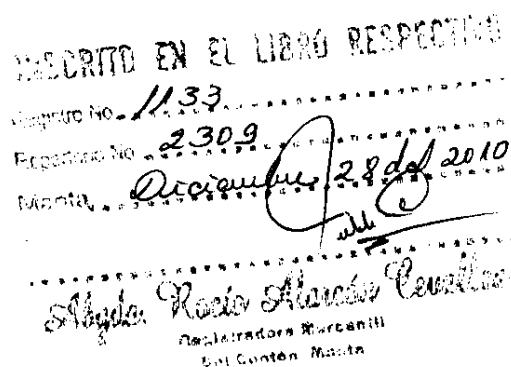 INSCRITO EN EL LIBRO RESPECTIVO
Registro No. 1133
Repertorio No. 2309
Manta, Diciembre 28 del 2010
Abgda. Rocío Alarcón Cevallos
Registradora Mercantil
Del Cantón Manta